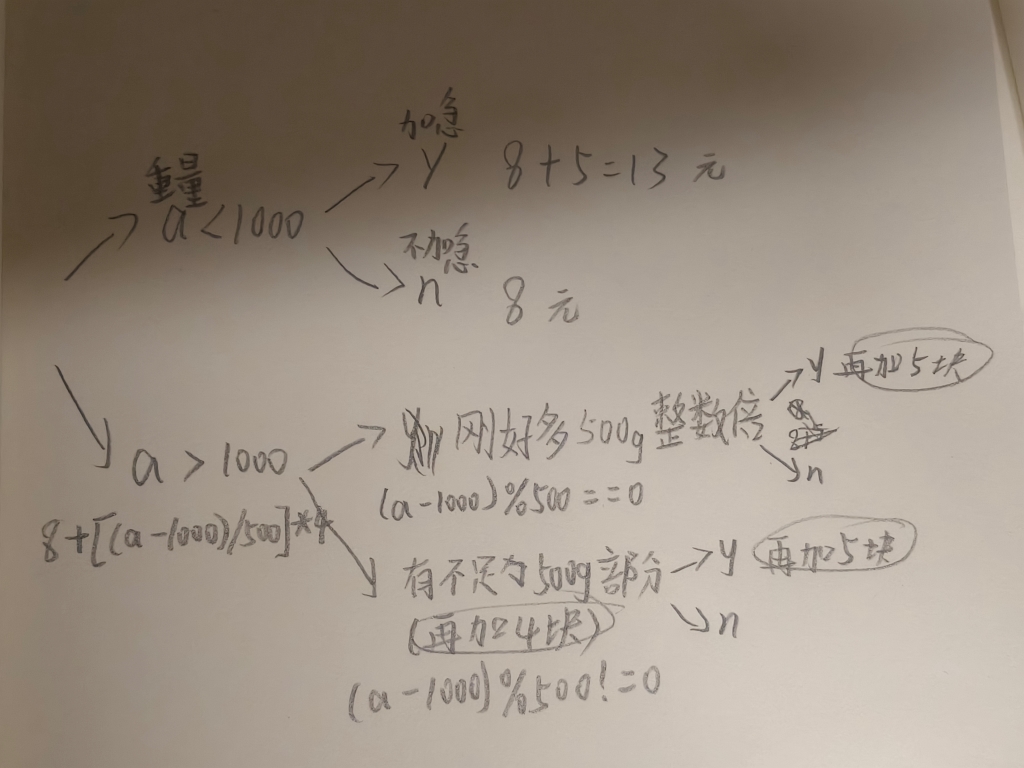 加急
重量 y 8+5=13 元
a<1000
不加急
n 8 元
y 再加5块
刚好多500g整数倍
a > 1000 n
(a-1000)%500==0
8+[(a-1000)/500]*4
有不足为500g部分 y 再加5块
(再加4块) n
(a-1000)%500!=0